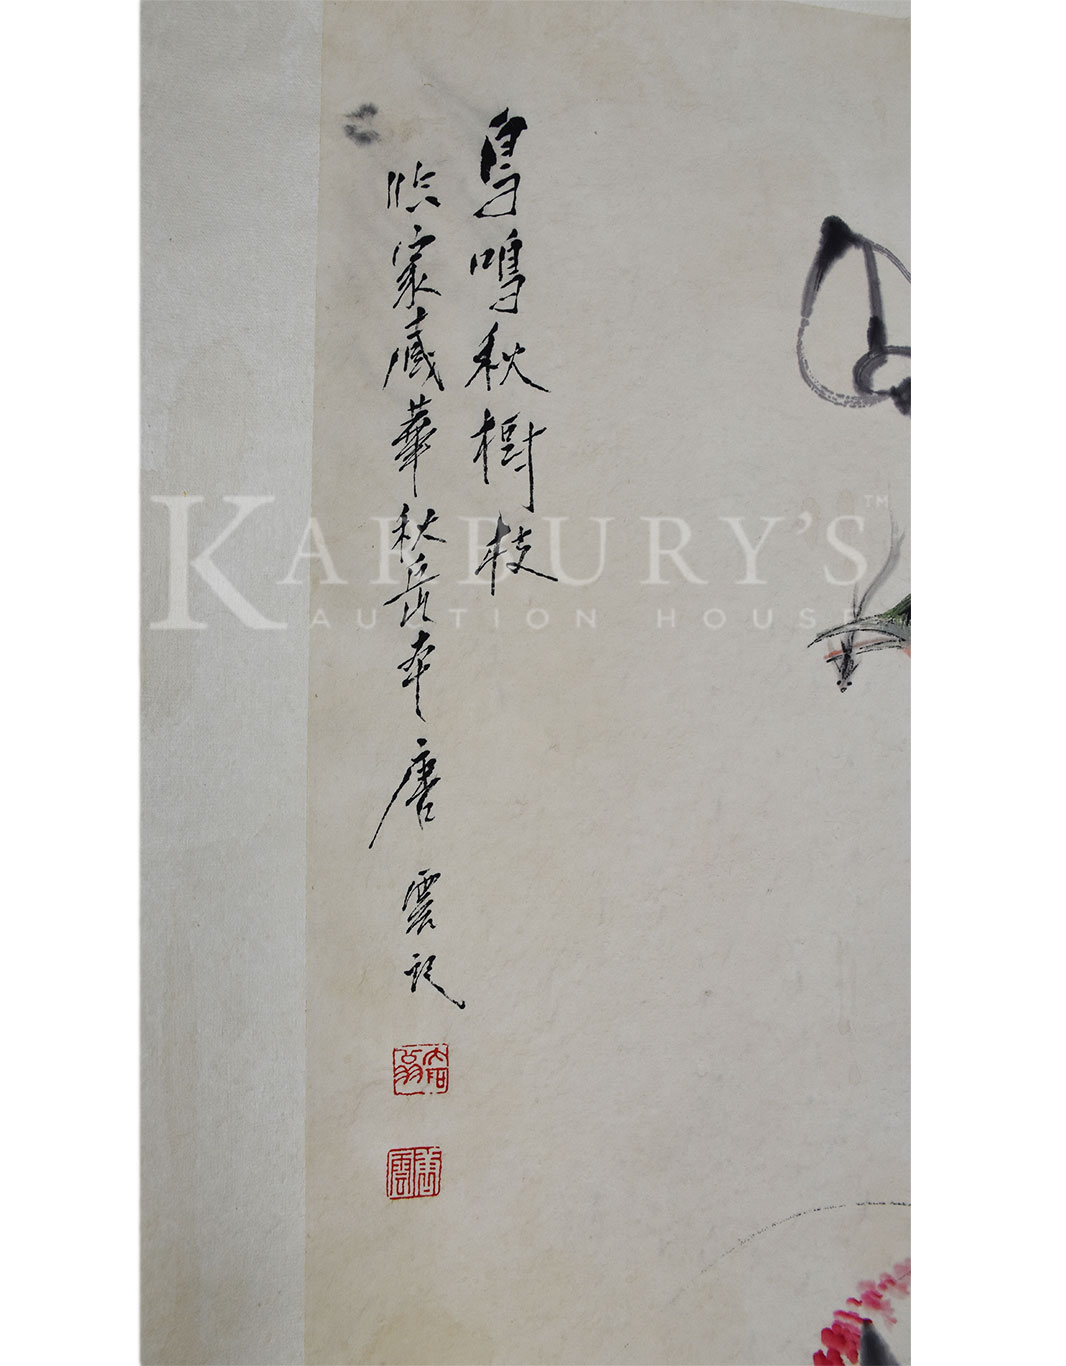 鳥鳴秋樹枝
臨家藏華秋岳本 唐雲記
唐雲
KARBURY'S™
AUCTION HOUSE